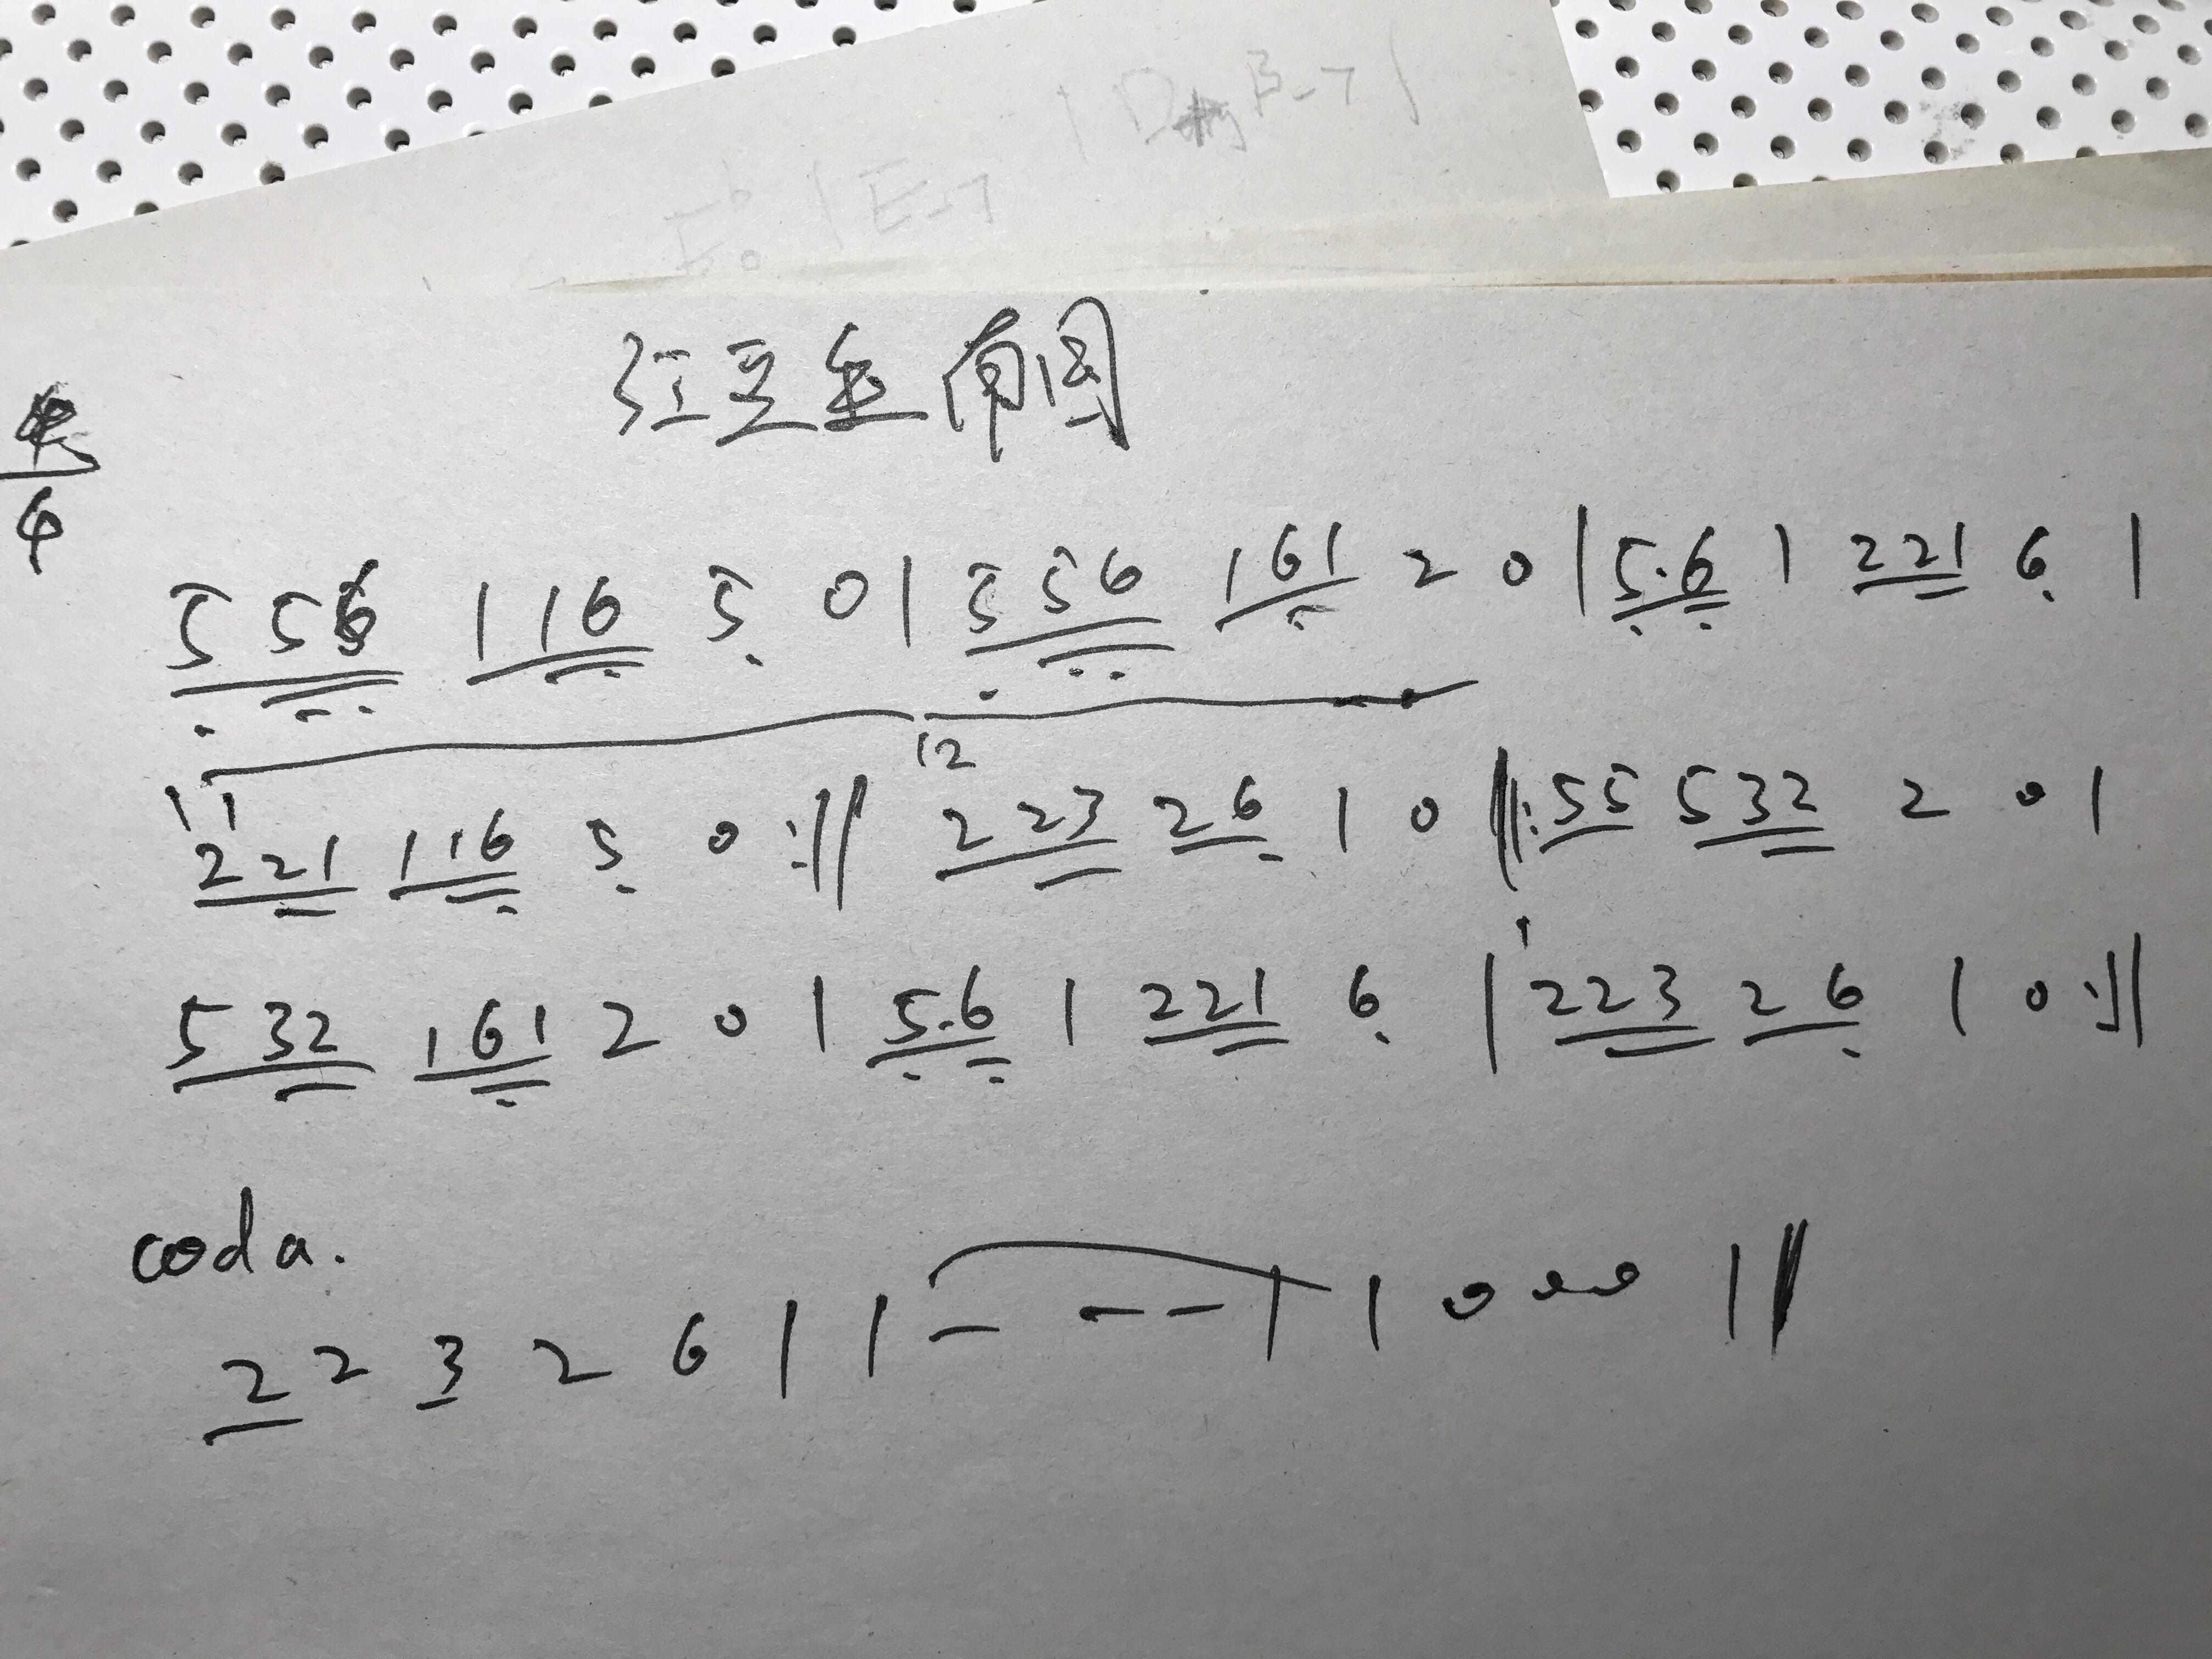 E-7
红豆生南国
4
5 5 6 1 1 6 5 0 | 5 5 6 1 6 1 2 0 | 5. 6 1 2 2 1 6 |
1 1 12
2 2 1 1 1 6 5 0 :|| 2 2 3 2 6 1 0 ||: 5 5 5 3 2 2 0 |
5 3 2 1 6 1 2 0 | 5. 6 1 2 2 1 6 | 2 2 3 2 6 1 0 :||
coda.
2 2 3 2 6 | 1 - - - | 1 0 0 0 ||